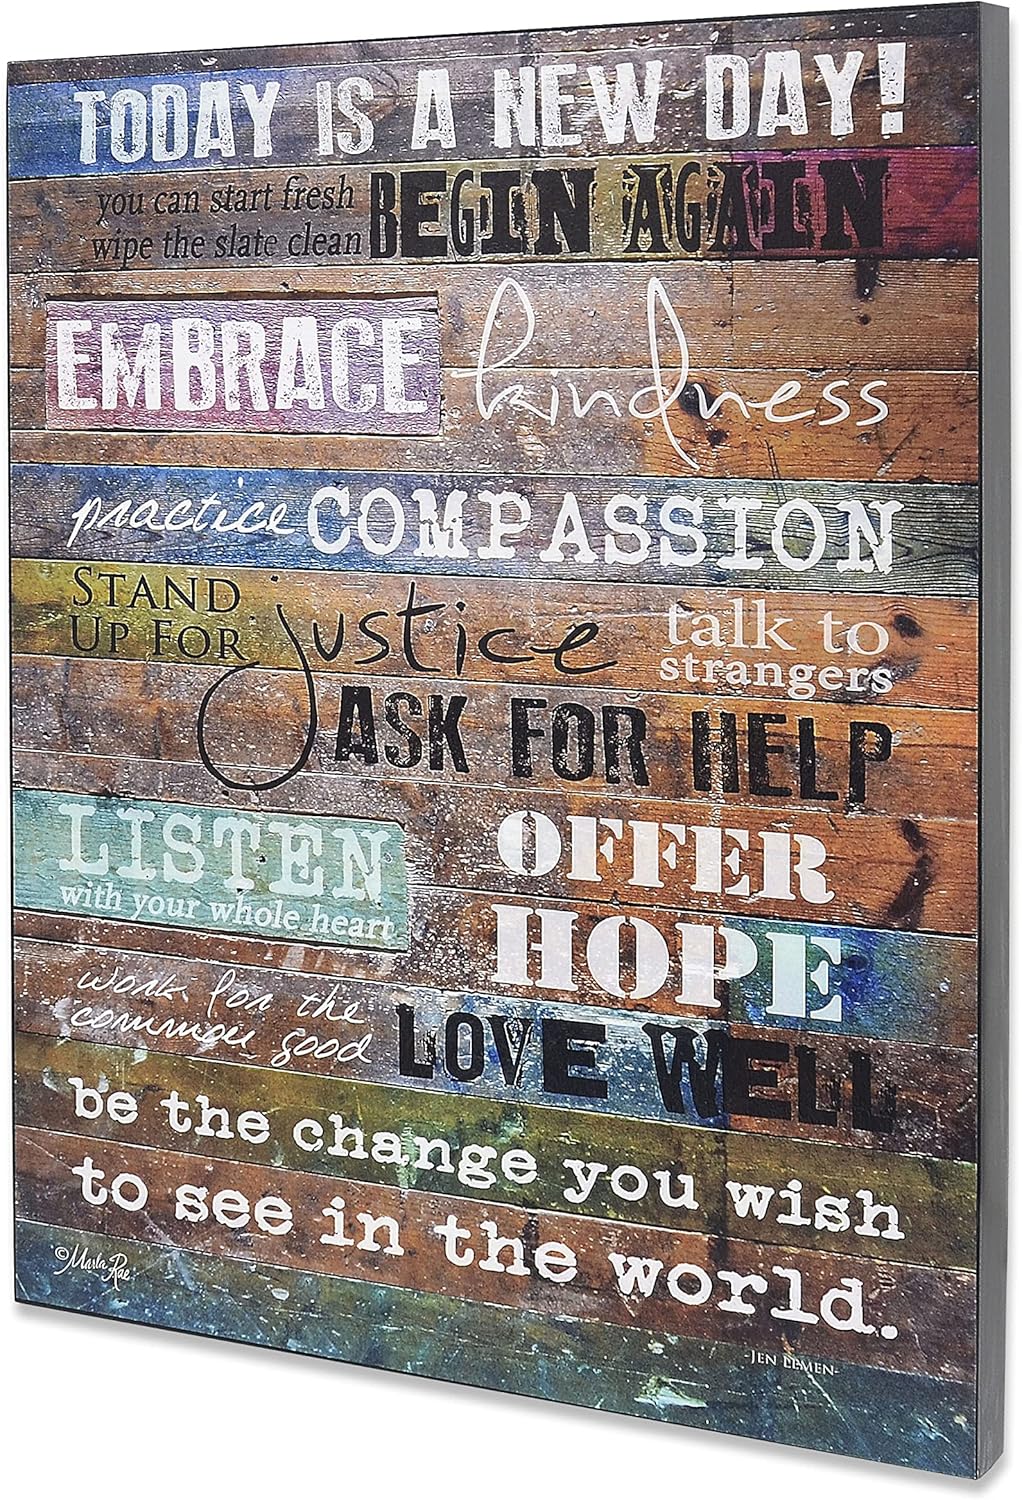 TODAY IS A NEW DAY!
you can start fresh
wipe the slate clean
BEGIN AGAIN
EMBRACE kindness
practice COMPASSION
STAND
UP FOR
justice
talk to
strangers
ASK FOR HELP
LISTEN
with your whole heart
OFFER
HOPE
work for the
common good
LOVE WELL
be the change you wish
to see in the world.
©Marla Rae
-JEN LEMEN-